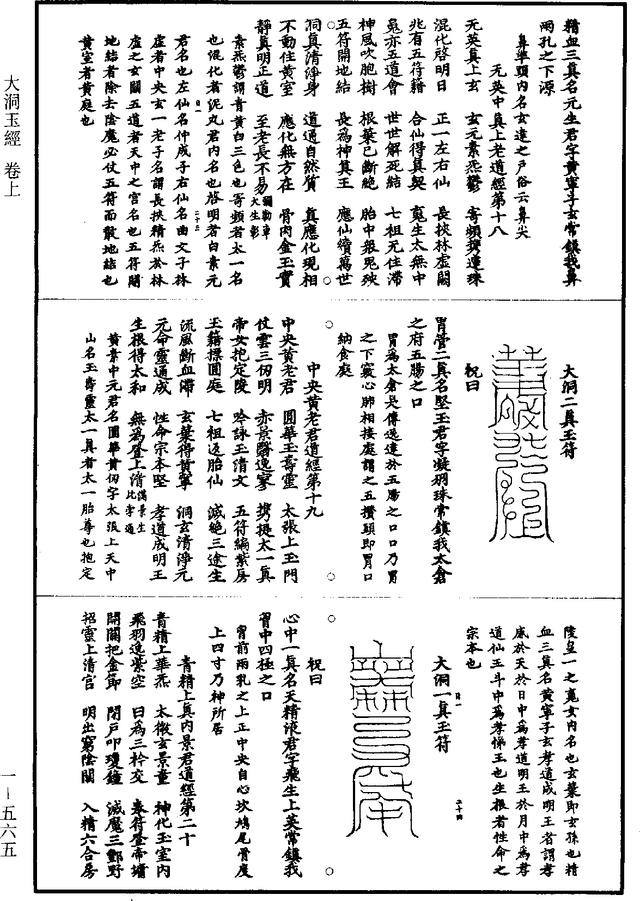 大洞玉經 卷上
一—五六五
精血三真名元生君字黃寧子玄常鎮我鼻
兩孔之下源
鼻準頭內名玄達之戶俗云鼻尖
无英中真上老道經第十八
无英真上玄 玄元素炁鬱 寄頻攜蓮珠
混化啓明日 正一左右仙 長挾林虛闕
兆有五符籍 合仙得真契 寃生太無中
寃亦王道會 世世解死結 七祖无住滯
神風吹胞樹 根葉已斷絕 胎中報鬼殃
五符開地結 長為神真王 應仙續萬世
洞真清淨身 道通自然質 真應化現相
不動住黃室 應化無方在 骨肉金玉實
靜真明正道 至老長不易
素炁鬱謂青黃白三色也寄頻者太一名
也混化者泥丸君內名也啓明者白素元
君名也左仙名仲成子右仙名曲文子林
虛者中央玄一老子名謂長挾精炁於林
虛之玄闕五道者天中之宮名也五符開
地結者除去陰魔必仗五符而散地結也
黃室者黃庭也
大洞二真玉符
祝曰
胃管二真名堅玉君字凝羽珠常鎮我太倉
之府五腸之口
胃為太倉是傳送達於五腸之口口乃胃
之下竅心肺相接處謂之五攢頭即胃口
納食處
中央黃老君道經第十九
中央黃老君 圓華玉壽靈 太張上玉門
仗雲三仞明 赤景翳逸寥 攜提太一真
帝女抱定陵 吟詠玉清文 五符編紫房
玉籍摽圓庭 七祖返胎仙 滅絕三途生
流風斷血滯 玄葉得黃寧 洞玄清淨元
元命靈通成 性命宗本堅 孝道成明王
生根得太和 無為登上清
黃素中元君名圓華黃仞字太張上天中
山名玉壽靈太一真者太一胎尊也抱定
陵皇一之寃女內名也玄葉即玄孫也精
血三真名黃寧子玄孝道成明王者謂孝
感於天於日中為孝道明王於月中為孝
道仙王斗中為孝悌王也生根者性命之
宗本也
大洞一真玉符
祝曰
心中一真名天精液君字飛生上英常鎮我
胷中四極之口
胷前兩乳之上正中央自心坎鳩尾骨度
上四寸乃神所居
青精上真內景君道經第二十
青精上華炁 太微玄景童 神化玉室內
飛羽逸紫空 日為三軨交 奉符登帝墉
開關把金節 閉戶叩瓊鐘 滅魔三酆野
招靈上清宮 明出窮陰關 入精六合房